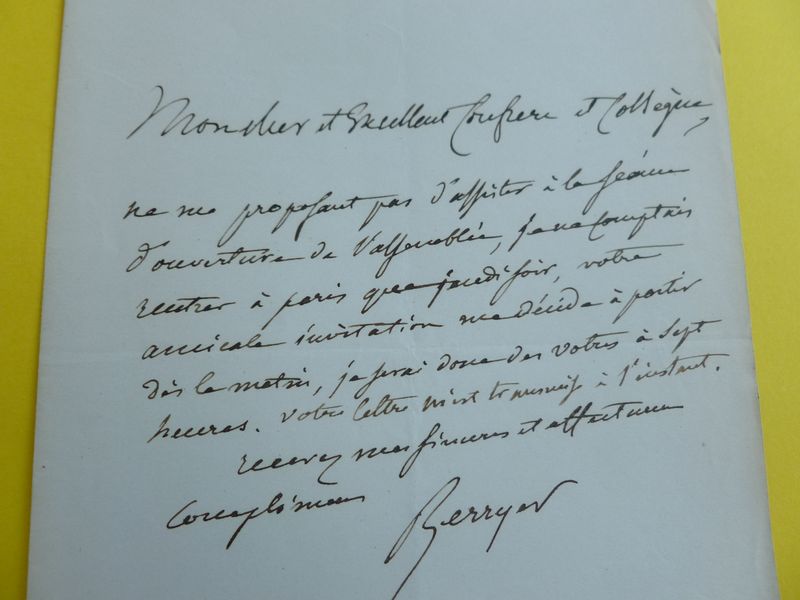 Mon cher et Excellent Confrere et Collègue,
ne me proposant pas d'assister à la séance
d'ouverture de l'assemblée, je ne comptais
rentrer à paris que jeudi soir, votre
amicale invitation me décide à partir
dès le matin, je serai donc des votres à sept
heures. votre lettre m'est transmise à l'instant.
recevez mes sinceres et affectueux
complimens
Berryer